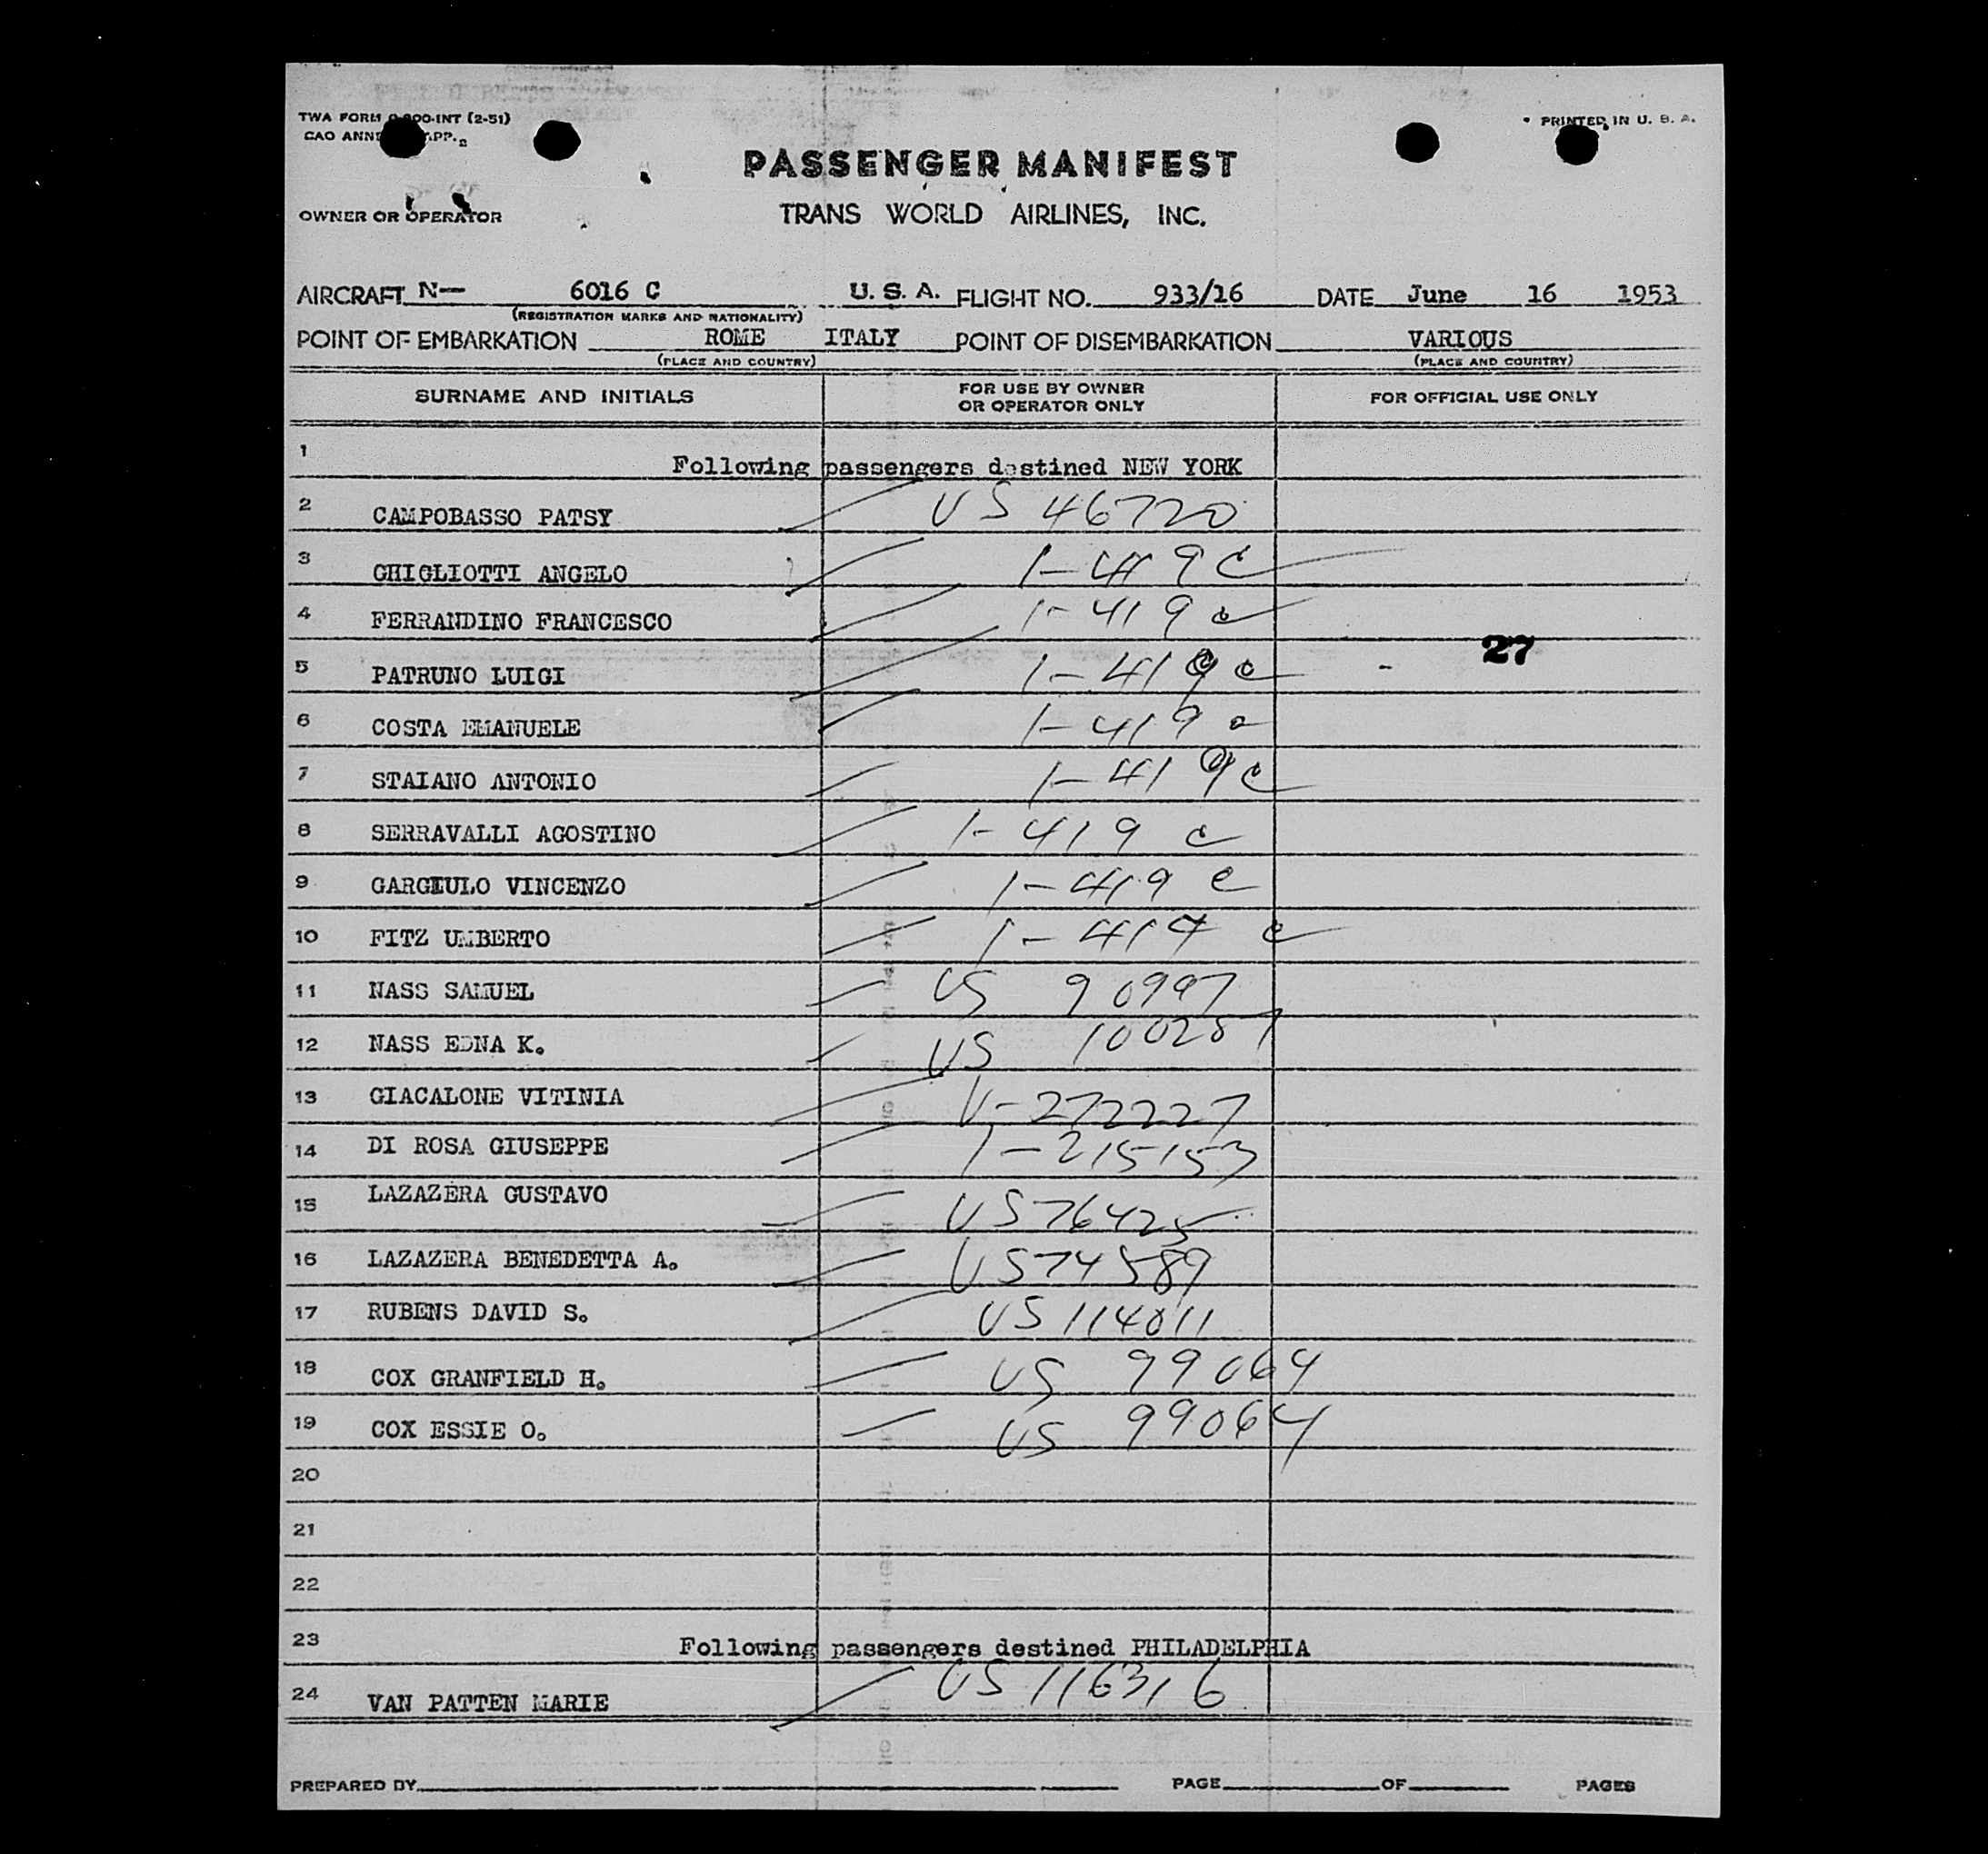 TWA FORM -INT (2-51)
PRINTED IN U. S. A.
CAO APP.
PASSENGER MANIFEST
OWNER OR OPERATOR
TRANS WORLD AIRLINES, INC.
AIRCRAFT N— 6016 C U. S. A. FLIGHT NO. 933/16 DATE June 16 1953
(REGISTRATION MARKS AND NATIONALITY)
POINT OF EMBARKATION ROME ITALY POINT OF DISEMBARKATION VARIOUS
(PLACE AND COUNTRY) (PLACE AND COUNTRY)
SURNAME AND INITIALS FOR USE BY OWNER OR OPERATOR ONLY FOR OFFICIAL USE ONLY
1 Following passengers destined NEW YORK
2 CAMPOBASSO PATSY US 46720
3 GHIGLIOTTI ANGELO 1-419c
4 FERRANDINO FRANCESCO 1-419c
27
5 PATRUNO LUIGI 1-419c -
6 COSTA EMANUELE 1-419c
7 STAIANO ANTONIO 1-419c
8 SERRAVALLI AGOSTINO 1-419c
9 GARGIULO VINCENZO 1-419c
10 FITZ UMBERTO 1-419c
11 NASS SAMUEL US 90997
12 NASS EDNA K. US 100287
13 GIACALONE VITINIA V-272227
14 DI ROSA GIUSEPPE 1-215153
15 LAZAZERA GUSTAVO US 76425
16 LAZAZERA BENEDETTA A. US 74589
17 RUBENS DAVID S. US 114011
18 COX GRANFIELD H. US 99064
19 COX ESSIE O. US 99064
20
21
22
23 Following passengers destined PHILADELPHIA
24 VAN PATTEN MARIE US 116316
PREPARED BY PAGE OF PAGES